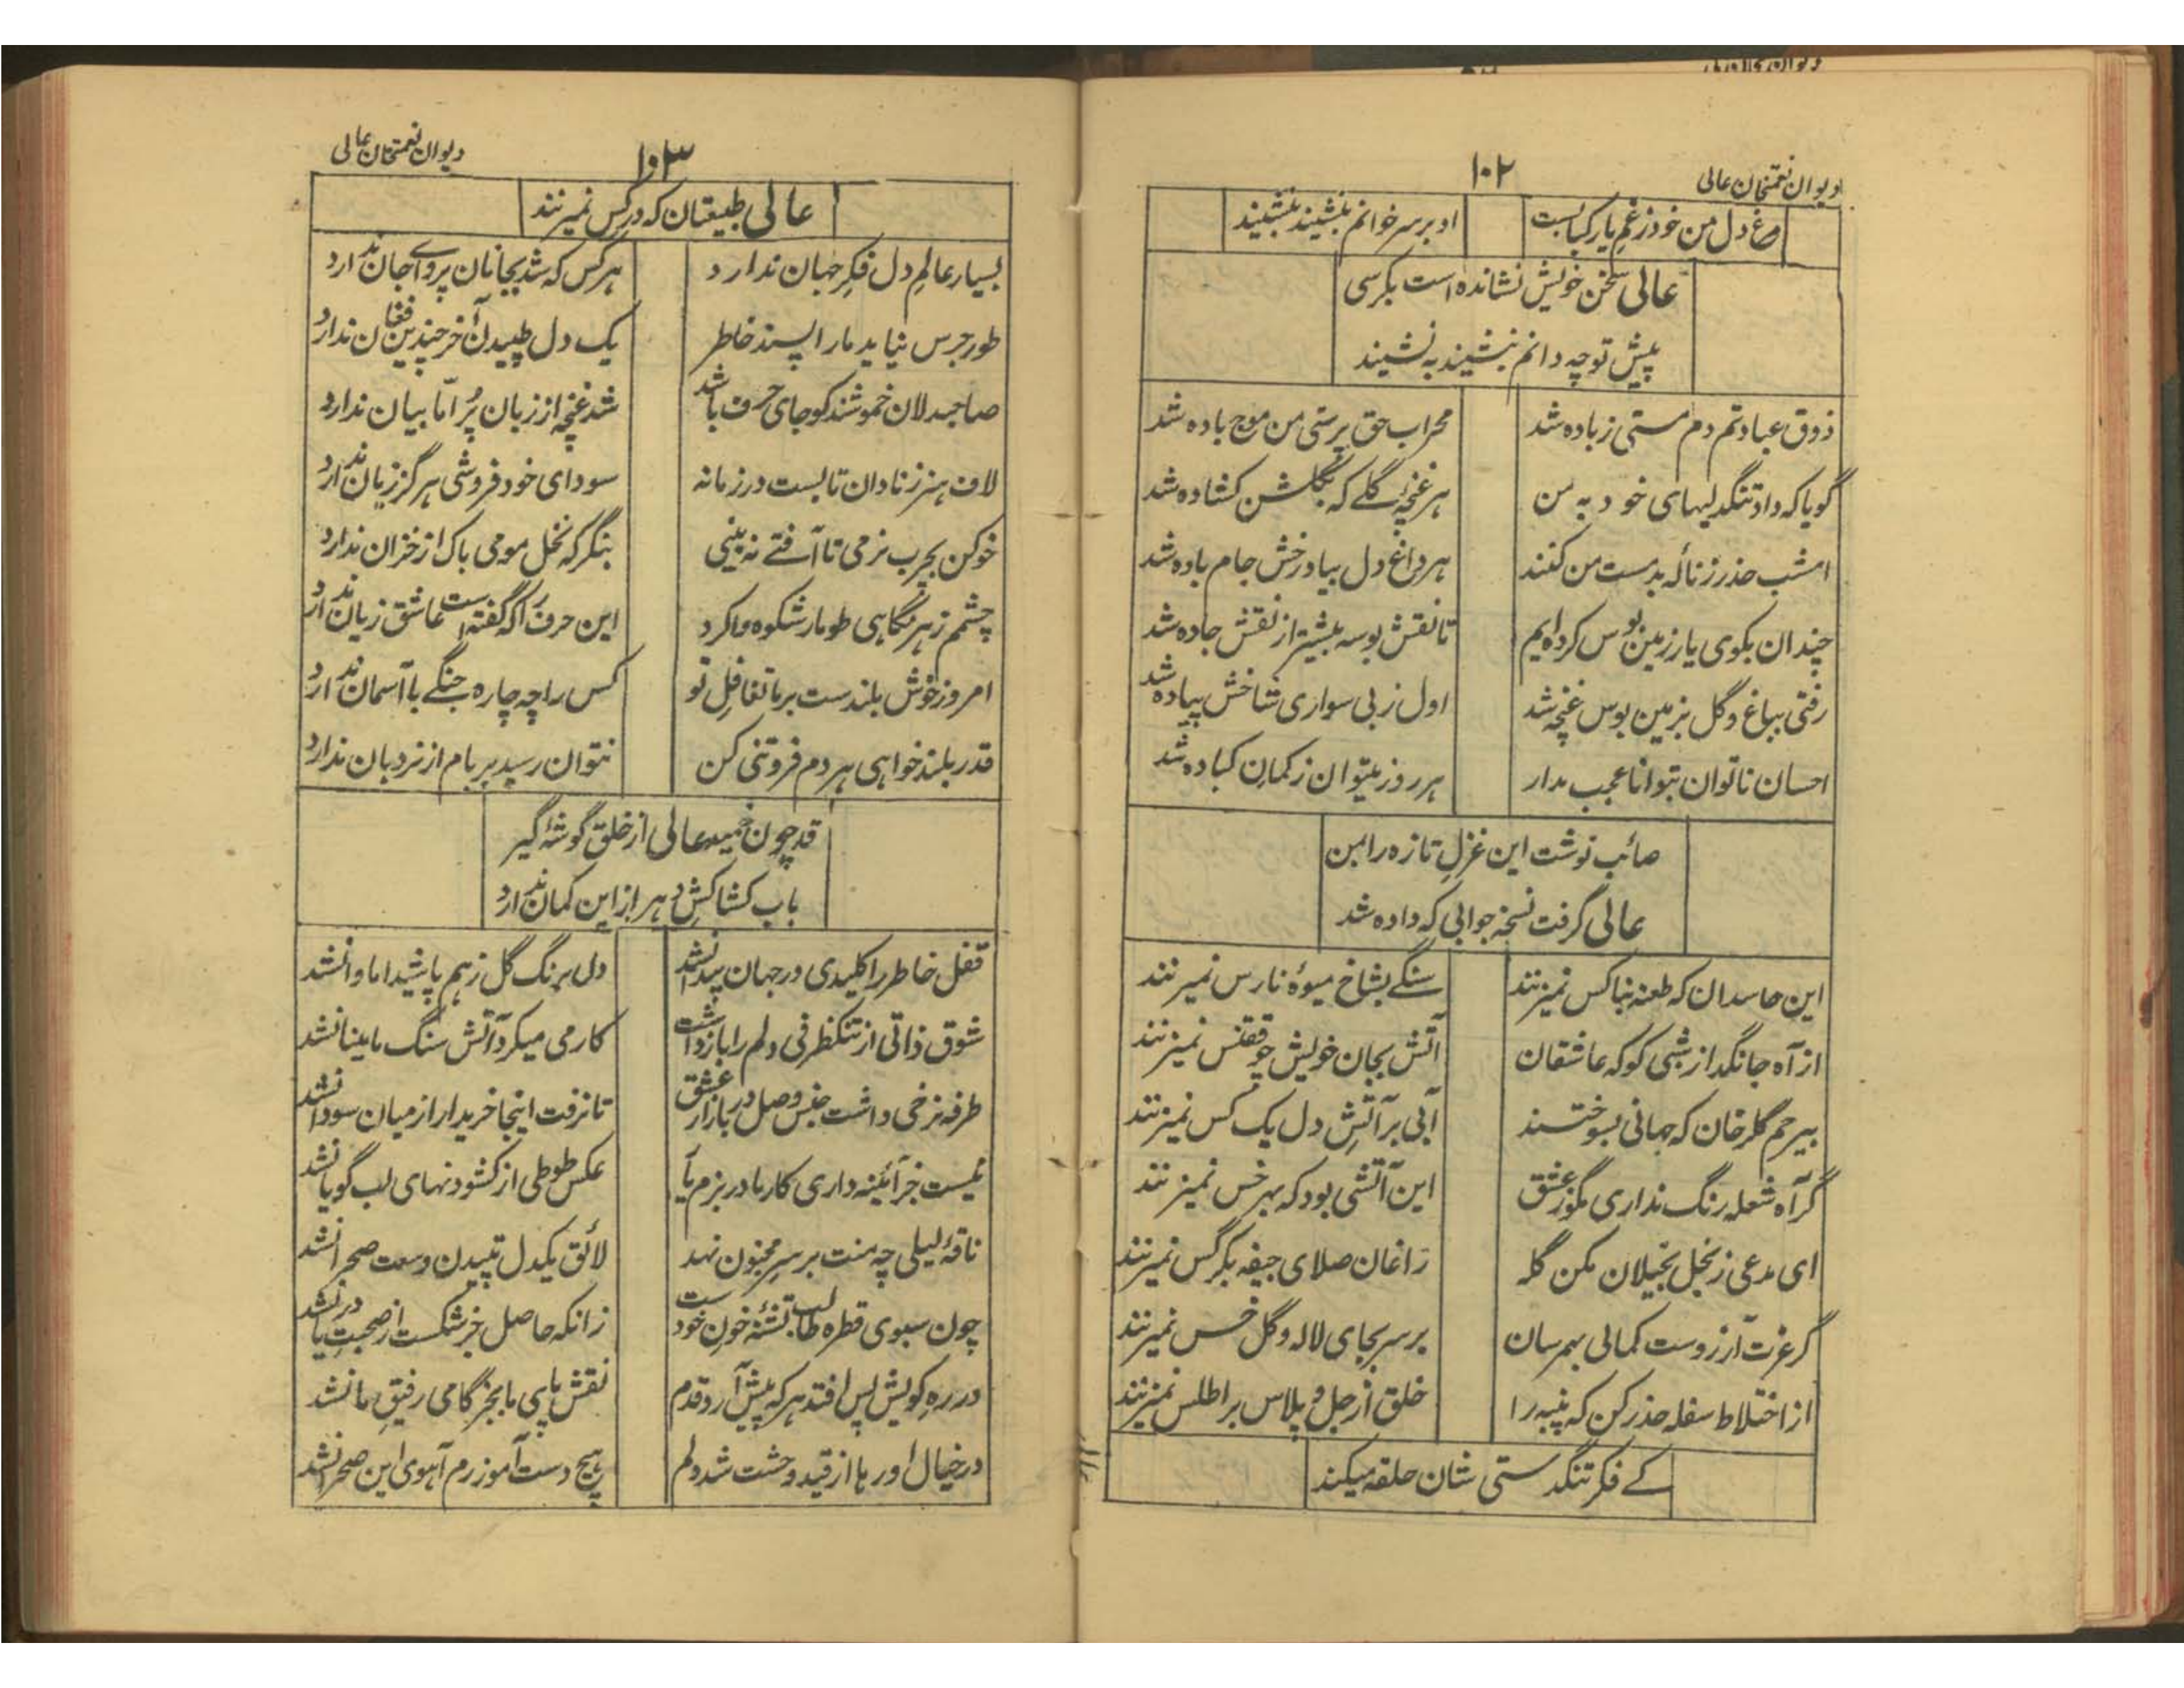 دیوان نعمتخان عالی
۱۰۲
مرغ دل من خود ز غم یار کبابست
او بر سر خوانم بنشیند بنشیند
عالی سخن خویش نشانده است بکرسی
پیش تو چه دانم بنشیند به نشیند
ذوق عبادتم دم مستی زیاده شد
محراب حق پرستی من موج باده شد
گویا که داد تنگدلیهای خود به من
هر غنچهٔ گلے که بگلشن کشاده شد
امشب حذر ز نالهٔ بدمست من کنند
هر داغ دل بیاد رخش جام باده شد
چندان بکوی یار زمین بوس کرده‌ایم
تا نقش بوسه بیشتر از نقش جاده شد
رفتی بباغ و گل بزمین بوس غنچه شد
اول ز بی سواری شاخش پیاده شد
احسان ناتوان بتوانا عجب مدار
هر روز میتوان ز کمان کباده شد
صائب نوشت این غزل تازه را بمن
عالی گرفت نسخه جوابی که داده شد
این حاسدان که طعنه بناکس نمیزنند
سنگے بشاخ میوهٔ نارس نمیزنند
از آه جانگداز شبی کو که عاشقان
آتش بجان خویش چو ققنس نمیزنند
بیرحم گلرخان که جهانی بسوختند
آبی بر آتش دل یک کس نمیزنند
گر آه شعله رنگ نداری مگو ز عشق
این آتشی بود که بهر خس نمیزنند
ای مدعی ز بخل بخیلان مکن گله
زاغان صلای جیفه بکرگس نمیزنند
گر عزت آرزوست کمالی بهمرسان
بر سر بجای لاله و گل خس نمیزنند
از اختلاط سفله حذر کن که پنبه را
خلق از جل و پلاس بر اطلس نمیزنند
کے فکر تنگدستی شان حلقه میکند
دیوان نعمتخان عالی
۱۰۳
عالی طبیعتان که در کس نمیزنند
بسیار عالم دل فکر جهان ندارد
هر کس که شد بجانان پروای جان ندارد
طور جرس نیاید ما را پسند خاطر
یک دل طپیدن آخر چندین فغان ندارد
صاحبدلان خموشند کو جای حرف باشد
شد غنچه از زبان پُر امّا بیان ندارد
لاف هنر ز نادان تا بست در زمانه
سودای خود فروشی هرگز زیان ندارد
خو کن بچرب نرمی تا آفتے نه بینی
بنگر که نخل مومی باک از خزان ندارد
چشمم ز هر نگاهی طومار شکوه وا کرد
این حرف را که گفته است عاشق زبان ندارد
امروز خوش بلندست بر ما تغافل تو
کس را چه چاره جنگے با آسمان ندارد
قدر بلند خواهی هر دم فروتنی کن
نتوان رسید بر بام از نردبان ندارد
قد چون خمیده عالی از خلق گوشه گیر
باب کشاکش دهر از این کمان ندارد
قفل خاطر را کلیدی در جهان پیدا نشد
دل برنگ گل ز هم پاشید اما وا نشد
شوق ذاتی از تنکظرفی دلم را باز داشت
کار می میکرد آتش سنگ ما مینا نشد
طرفه نرخی داشت جنس وصل در بازار عشق
تا نرفت اینجا خریدار از میان سودا نشد
نیست جز آئینه داری کار ما در بزم یار
عکس طوطی از کشودنهای لب گویا نشد
ناقهٔ لیلی چه منت بر سر مجنون نهد
لائق یکدل تپیدن وسعت صحرا نشد
چون سبوی قطره طالب تشنهٔ خون خودست
زانکه حاصل جز شکست از صحبت دریا نشد
در ره کویش پس افتد هر که پیش آرد قدم
نقش پای ما بجز گامی رفیق ما نشد
در خیال او رها از قید وحشت شد دلم
هیچ دست آموز رم آهوی این صحرا نشد